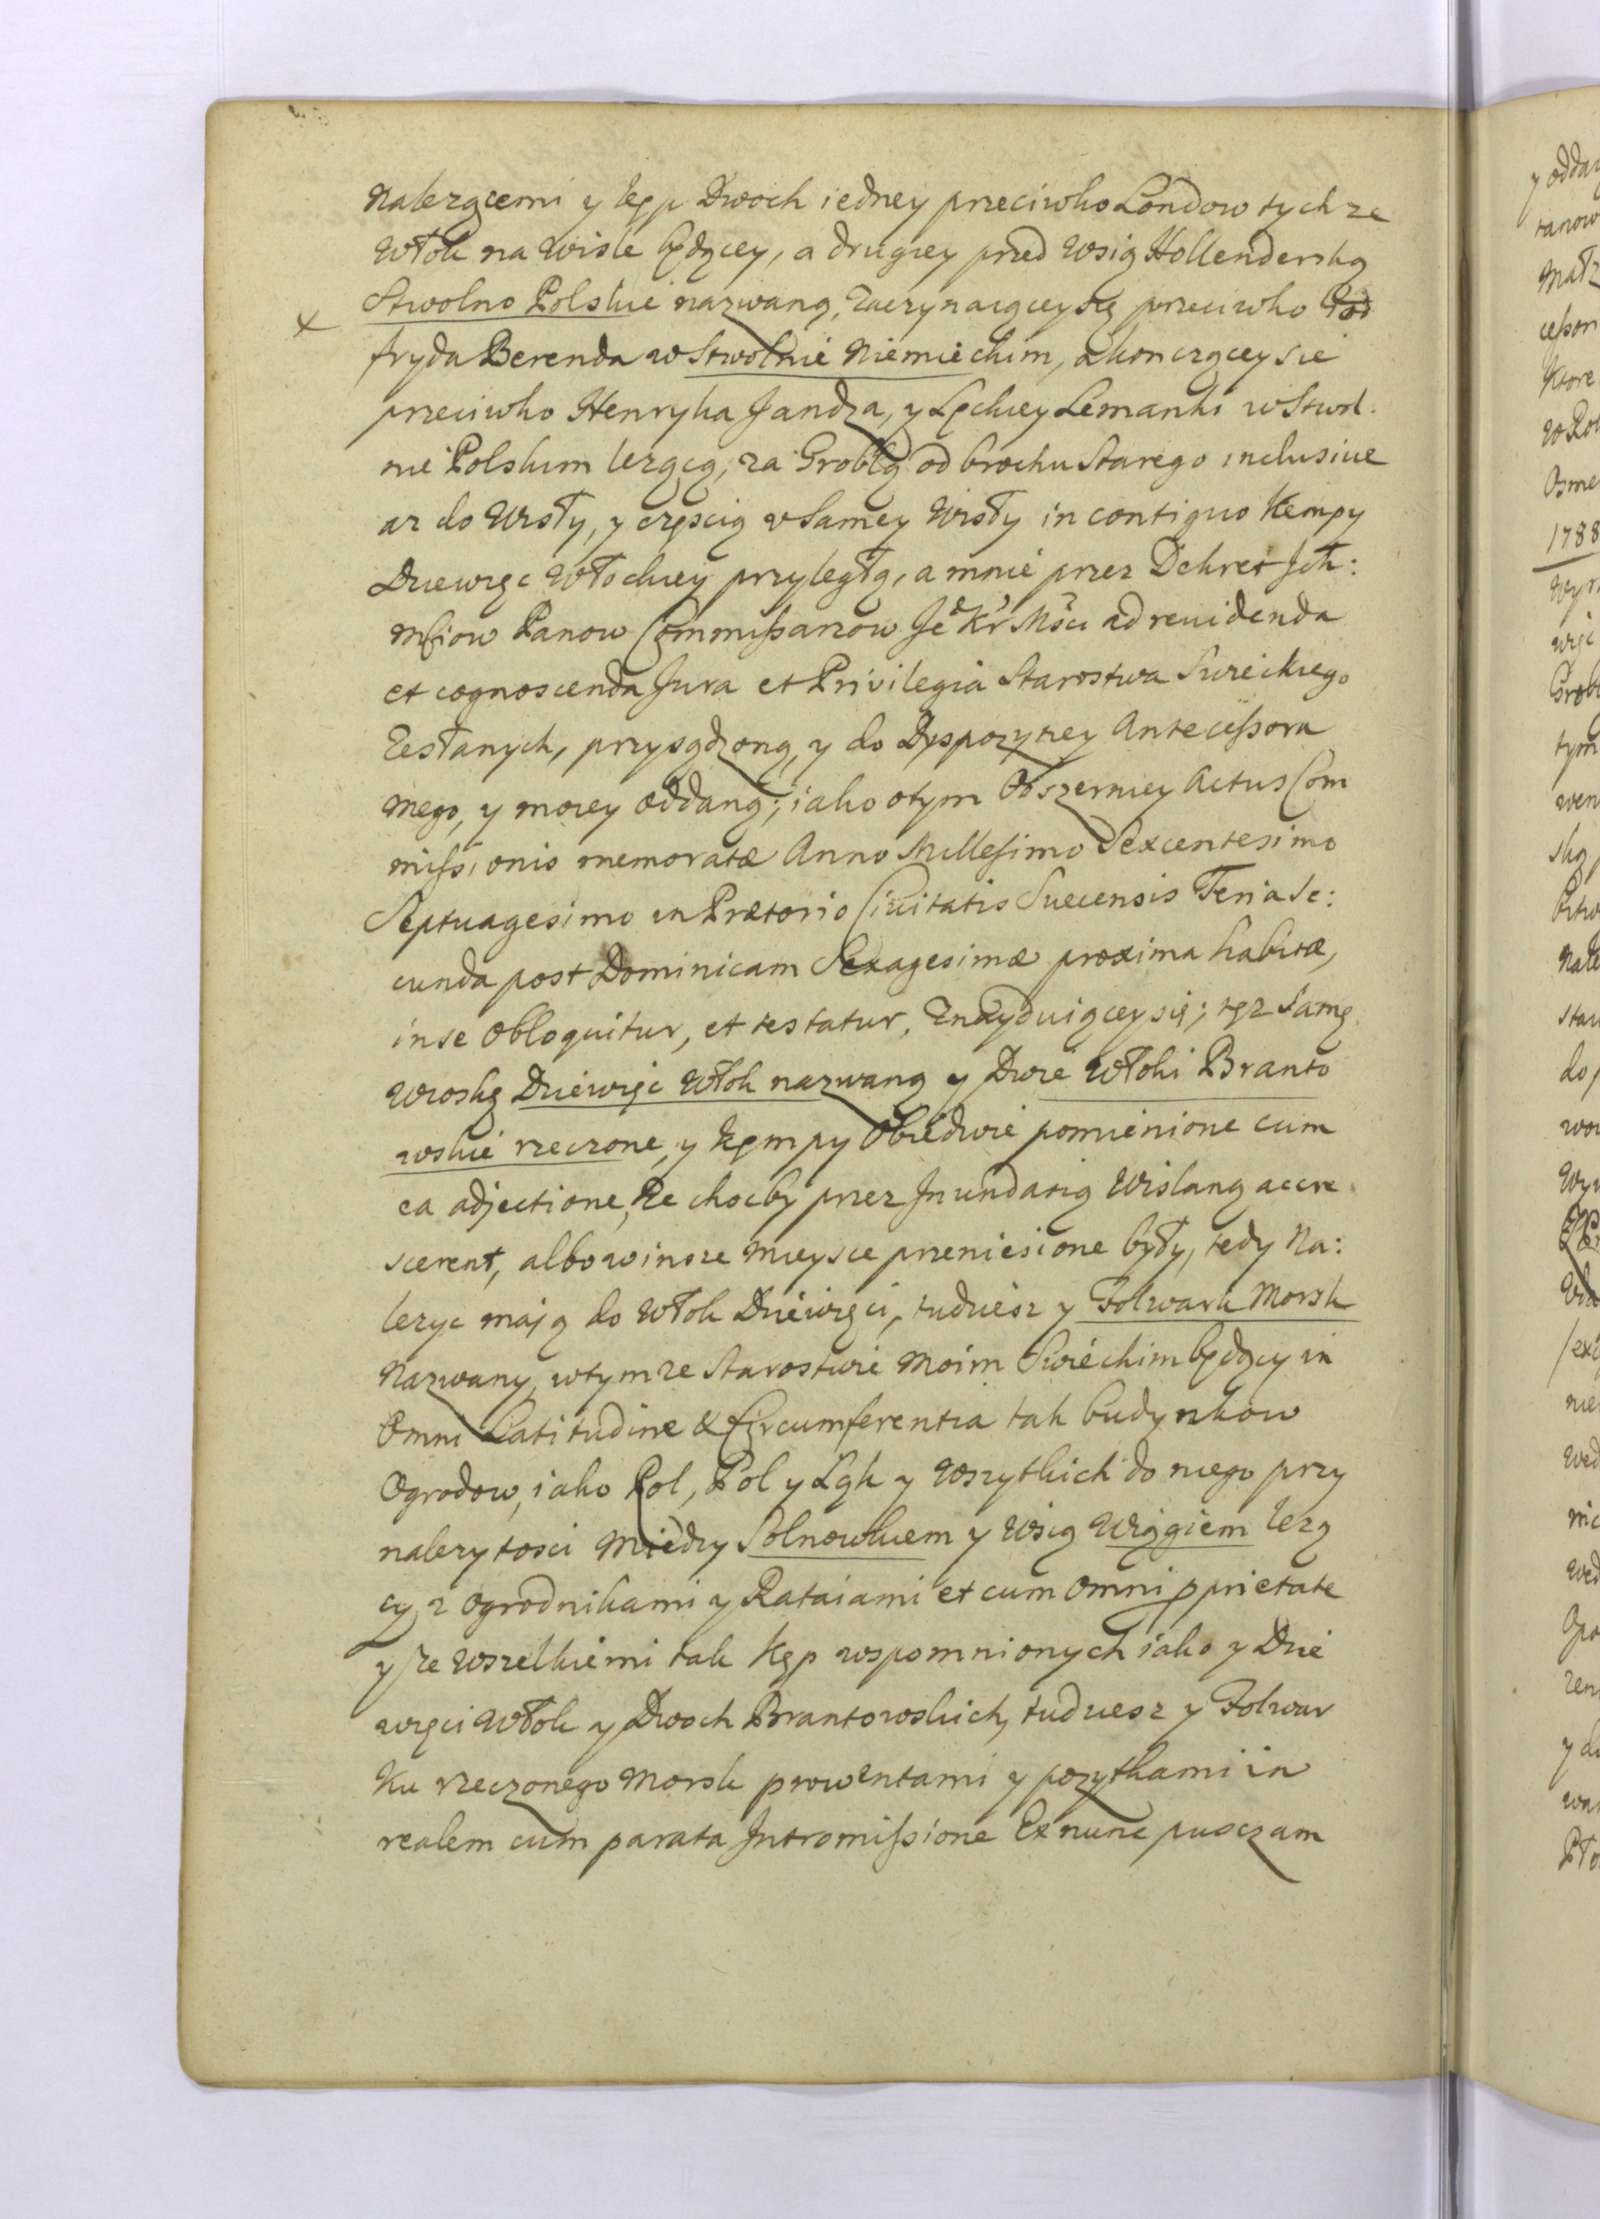 Należącemi y kęp Dwoch iedney przeciwko Londow tychze
Włok na Wisle będącey, a drugiey przed Wsią Hollenderską
Stwolno Polskie nazwaną, Zaczynaiącey Się przeciwko God
fryda Berenda w Stwolnie Niemieckim, akonczącey sie
przeciwko Henryka Jandza, y Lęckiey Lemanki w Stwol.
nie Polskim lezącą, za Groblą od brochu Starego inclusive
az do Wisły, y częscią w Samey Wisły in contiguo Kempy
Dziewięc Włockiey przyległą, a mnie przez Dekret Ich:
Mciow Panow Commissarzow Je Kr Mści ad revidenda
et cognoscenda Jura et Privilegia Starostwa Swieckiego
Zesłanych, przysądzoną, y do Dyspozyciey Antecessora
mego, y moiey oddaną; iako otym Obszerniey Actus Com
missionis memoratæ Anno Millesimo Sexcentesimo
Septuagesimo in Prætorio Civitatis Suecensis Feria Se:
cunda post Dominicam Sexagesimæ proxima habitæ,
in se obloquitur, et testatur, Znayduiącey się; tęz Samę
Wioskę Dziewięc Włok nazwaną y Dwie Włoki Branto
wskie rzeczone, y kęmpy Obiedwie pomienione cum
ea adjectione, Ze chocby przez Inundatią Wislaną accre
scerent, albo winsze Mieysce przeniesione były, tedy Na:
lezyc maią do Włok Dziewięci, tudziesz y Folwark Morsk
Nazwany, wtymze Starostwie Moim Swieckim będący in
Omni Latitudine & Circumferentia tak budynkow
Ogrodow, iako Rol, Pol y Ląk y Wszytkich do niego przy
nalezytosci Miedzy Solnowkiem y Wsią Wiągiem lezą
cy, z Ogrodnikami y Rataiami et cum omni pprietate
y Ze Wszelkiemi tak kęp wspomnionych iako y Dzie
więci Włok y Dwoch Brantowskich, tudziesz y Folwar
ku rzeczonego Morsk prowentami y pozytkami in
realem cum parata Intromissione Ex nunc pusczam